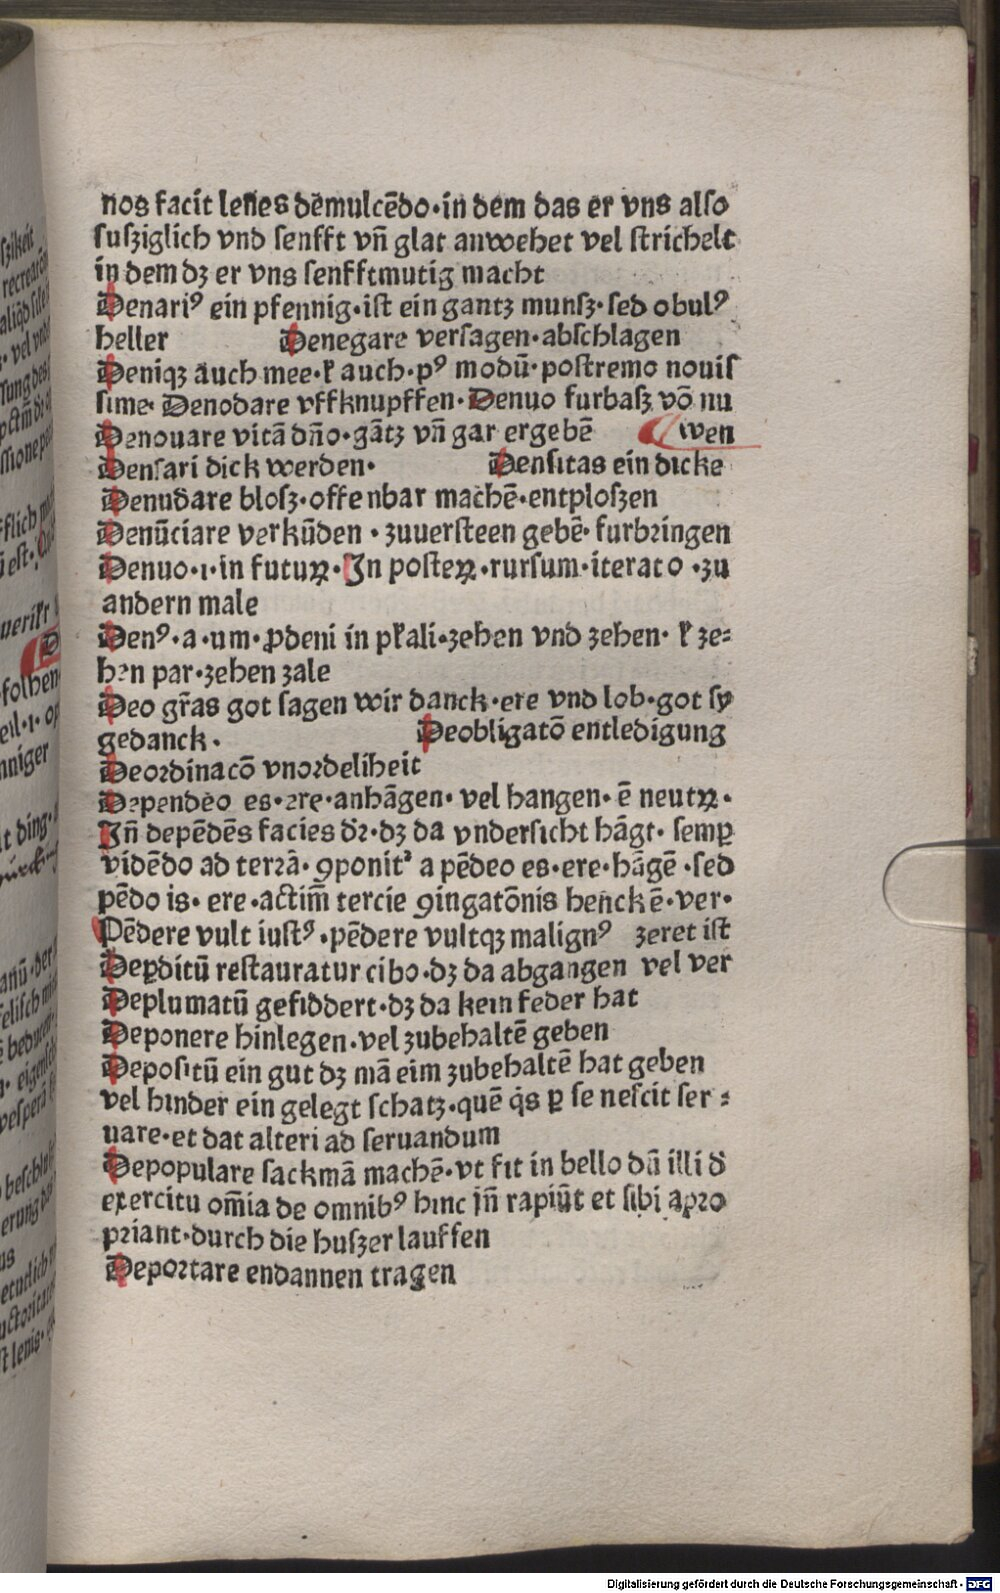 nos facit lenes demulcēdo·in dem das er vns also
suſziglich vnd senfft vn̄ glat anwehet vel strichelt
in dem dʒ er vns senfftmutig macht
Denariꝰ ein pfennig·ist ein gantz munſz·sed obulꝰ
heller Denegare versagen·abschlagen
Deniqʒ auch mee·ꝉ auch·pꝰ modū·postremo nouis
sime· Denodare vffknupffen·Denuo furbaſz vō nu
Denouare vitā dn̄o·gātz vn̄ gar ergebē wen
Densari dick werden· Densitas ein dicke
Denudare bloſz·offenbar machē·entploſzen
Denūciare verkūden·zuuersteen gebē·furbringen
Denuo·i·in futuꝝ·In posteꝝ·rursum·iterato·zu
andern male
Denꝰ·a·um·ꝓdeni in pꝉali·zehen vnd zehen·ꝉ ze⸗
hen par·zehen zale
Deo gr̄as got sagen wir danck·ere vnd lob·got sy
gedanck· Deobligatō entledigung
Deordinacō vnordeliheit
Dependeo es·ere·anhāgen·vel hangen·ē neutꝝ·
In̄ depēdēs facies dr̄·dʒ da vndersicht hāgt·semꝑ
vidēdo ad terrā·ꝯponit᷑ a pēdeo es·ere·hāgē·sed
pēdo is·ere·actim̄ tercie ꝯiugatōnis henckē·ver·
Pēdere vult iustꝰ·pēdere vultqʒ malignꝰ zeret ist
Deꝑditū restauratur cibo·dʒ da abgangen vel ver
Deplumatū gefiddert·dʒ da kein feder hat
Deponere hinlegen·vel zubehaltē geben
Depositū ein gut dʒ mā eim zubehaltē hat geben
vel hinder ein gelegt schatz·quē q̇s ꝑ se nescit ser⸗
uare·et dat alteri ad seruandum
Depopulare sackmā machē·vt fit in bello dū illi d̄
exercitu om̄ia de omnibꝰ hinc in̄ rapiūt et sibi apro
priant·durch die huſzer lauffen
Deportare endannen tragen
Digitalisierung gefördert durch die Deutsche Forschungsgemeinschaft - DFG